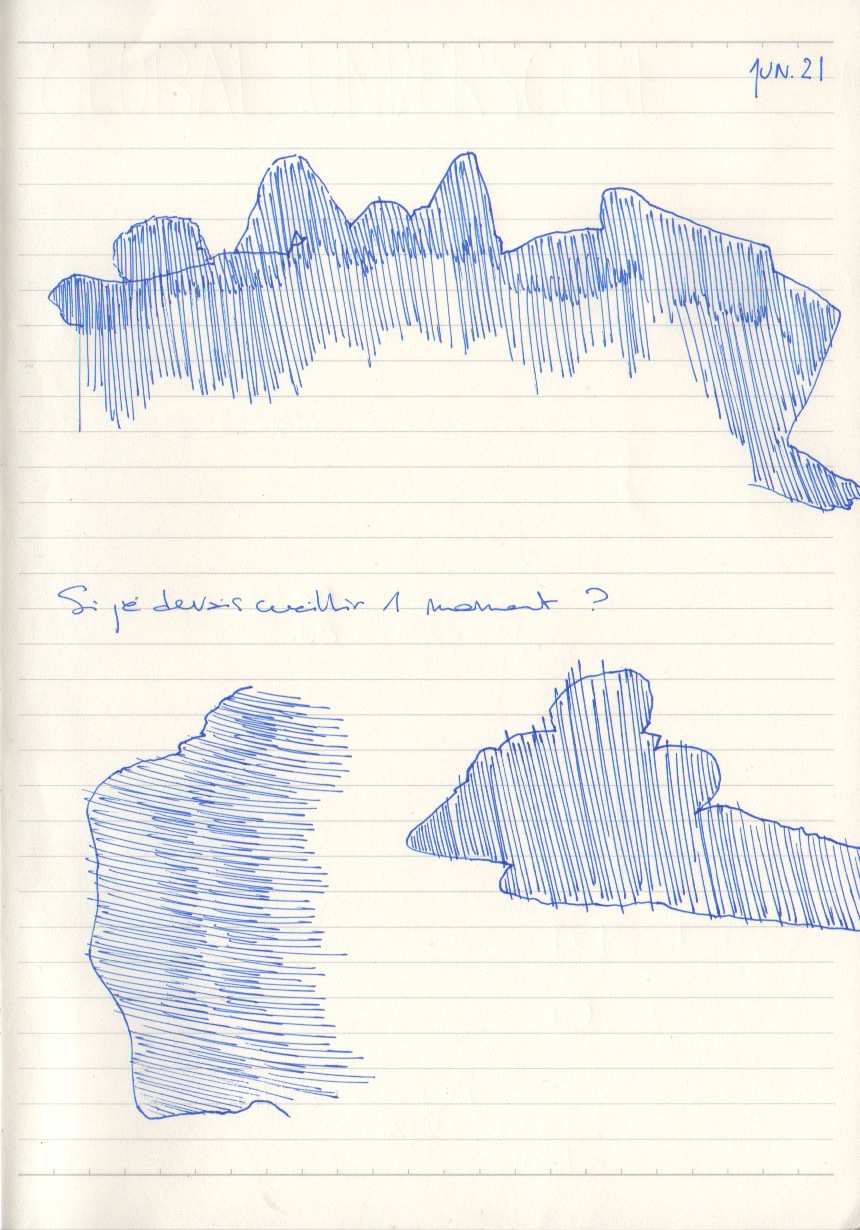 JUN. 21
Si je devais cueillir 1 moment ?